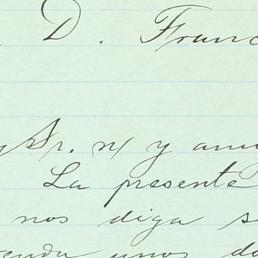 D. Franc
y Sr. n/ y ami
La presente
nos diga s
enda unos do